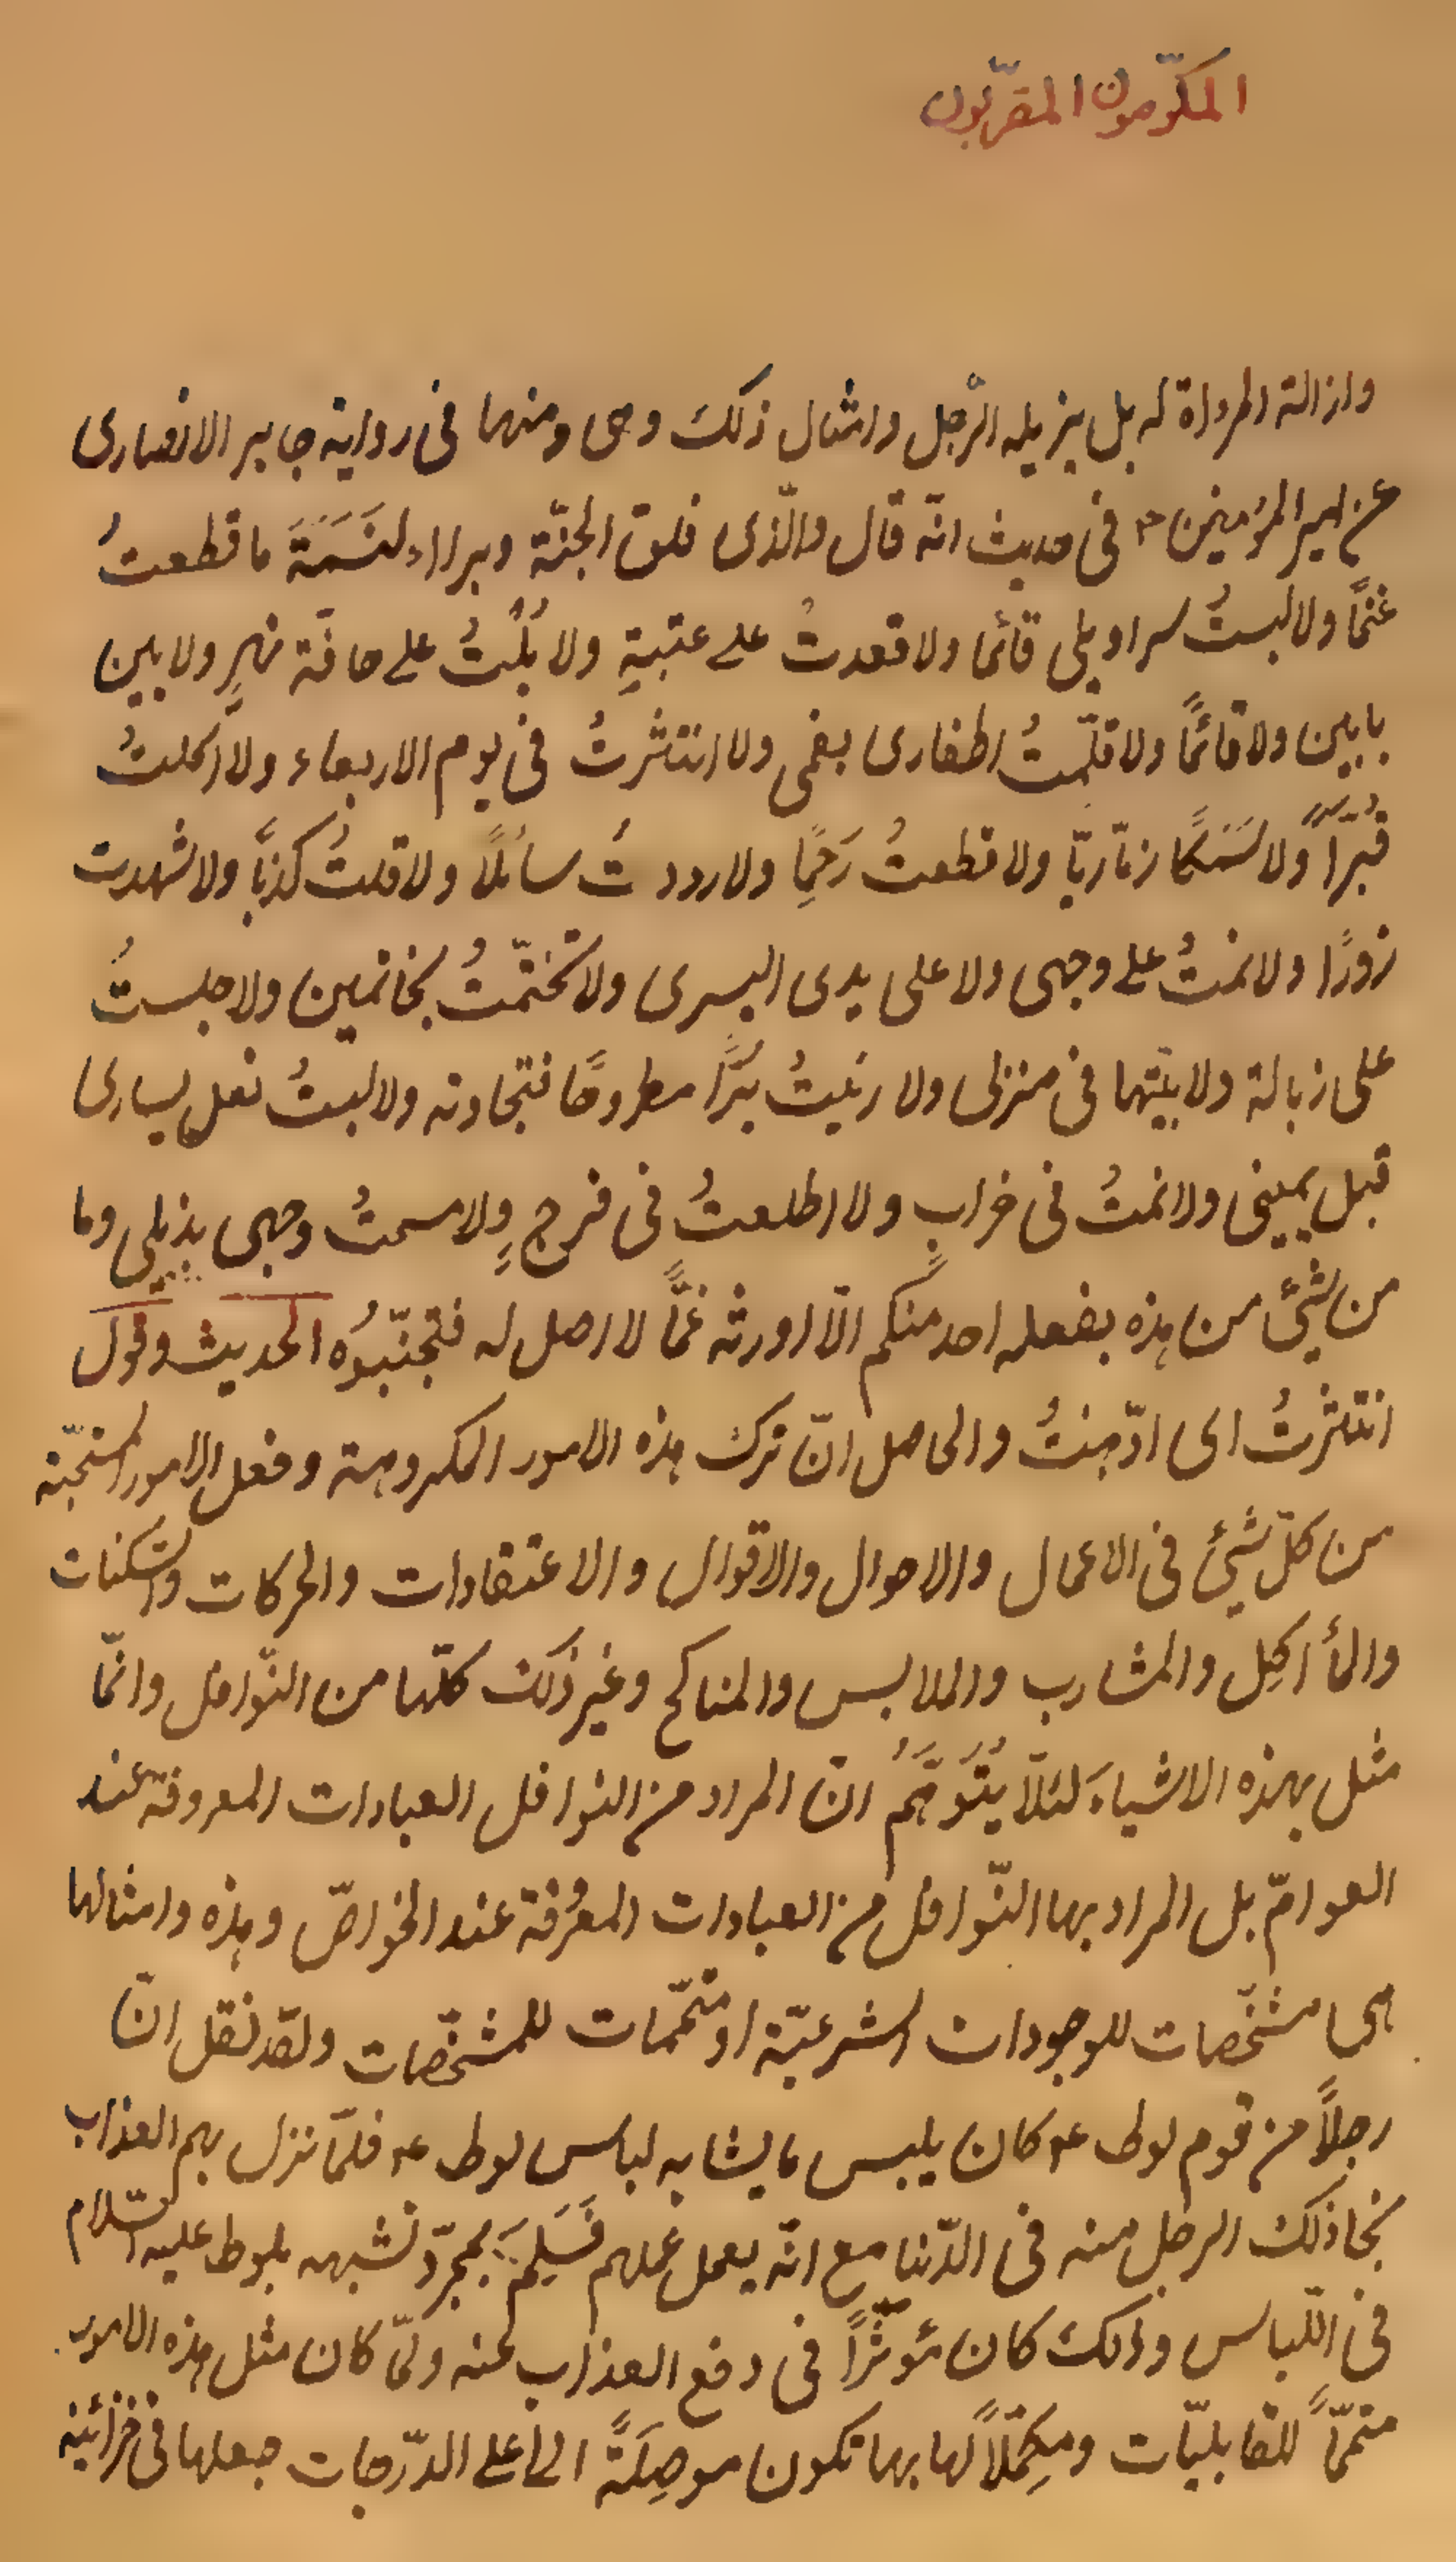 المكرّمون المقرّبون
وازالة المرداة له بل يزيله الرّجل وامثال ذلك وهى ومنها فى رواية جابر الانصارى
عن امير المؤمنين ع فى حديث انّه قال والّذى فلق الحبّة وبراء النَسَمَةَ ما قطعتُ
غنمًا ولا لبستُ سراويلى قائما ولا قعدتُ على عتبةِ ولا بُلْتُ على حافّة نهرٍ ولا بين
بابين ولا قائمًا ولا قلّمتُ اظفارى بفمى ولا انتثرتُ فى يوم الاربعاء ولا اكلتُ
قُبّرًا ولا سَمَكًا زمّاريّا ولا قطعتُ رَحِمًا ولا رددتُ سائلًا ولا قلتُ كذبًا ولا شهدت
زورًا ولا نمتُ على وجهى ولا على يدى اليسرى ولا تختّمتُ بخاتمين ولا جلستُ
على زبالة ولا بيّتها فى منزلى ولا رئيتُ بُرًّا مطروحًا فتجاوته ولا لبستُ نعل يسارى
قبل يمينى ولا نمتُ فى خرابٍ ولا اطلعتُ فى فرجٍ ولا مسحتُ وجهى بذيلى وما
من شئ من هذه يفعله احد منكم الّا اورثه غمًّا لا اصل له فتجنّبوُه الحديث وقول
انتثرتُ اى ادّهنتُ والحاصل انّ ترك هذه الامور المكروهة وفعل الامور المستحبّة
من كلّ شئ فى الاعمال والاحوال والاقوال والاعتقادات والحركات والسّكنات
والمأاكِل والمشارب والملابس والمناكح وغير ذلك كلّها من النّوافل وانّما
مثل بهذه الاشياءَ لئلّا يُتَوَهَّمُ انّ المراد من النوافل العبادات المعروفة عند
العوامّ بل المراد بها النّوافل من العبادات المعرُفة عند الخواصّ وهذه وامثالها
هى مشخّصات للوجودات الشرعيّة او متمّمات للمشخّصات ولقد نقل انّ
رجلًا من قوم لوط ع كان يلبس ما يشابه لباس لوط ع فلمّا نزل بهم العذاب
نجا ذلك الرجل منه فى الدّنيا مع انّه يعمل عملهم فَسَلِمَ بمجرّد تشبهه بلوط عليه السّلام
فى اللّباس وذلك كان مؤثّرًا فى دفع العذاب عنه ولمّا كان مثل هذه الامور
متمّمًا للقابليّات ومكِمّلًا لها بها تكون موصِلَةً الى اعلى الدّرجات جعلها فى خزائنه